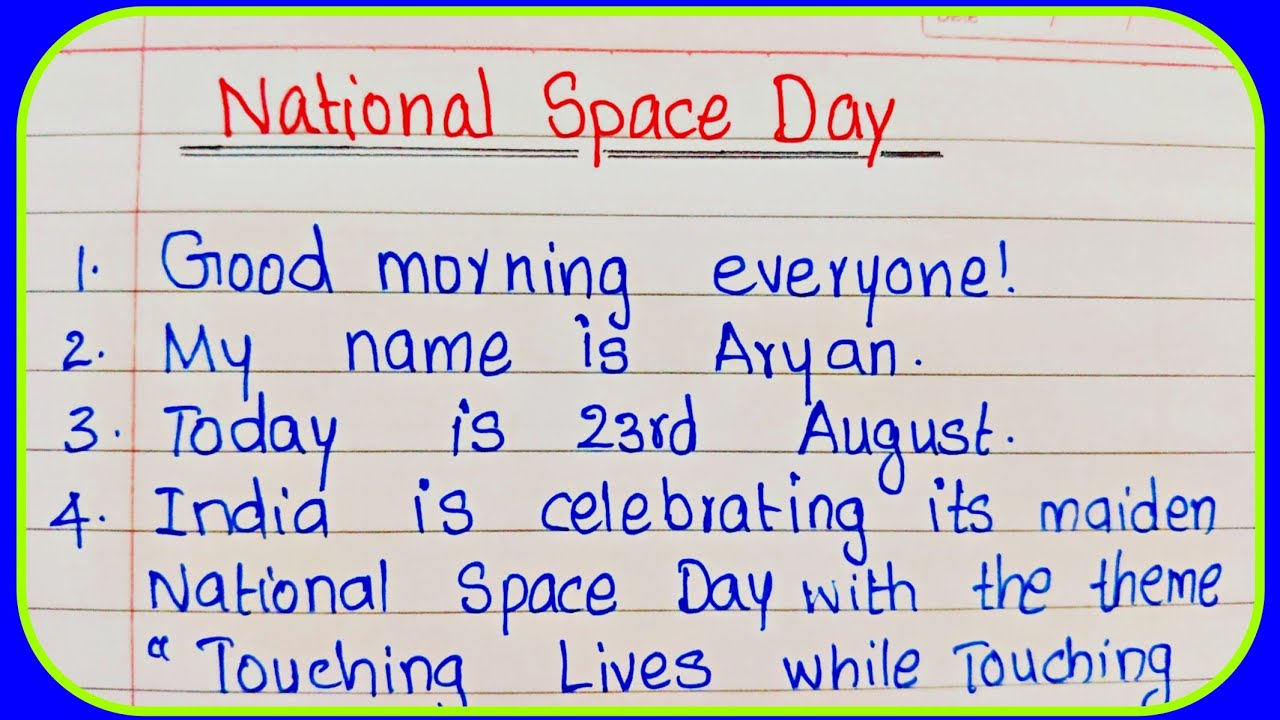 DATE
National Space Day
1. Good morning everyone!
2. My name is Aryan.
3. Today is 23rd August.
4. India is celebrating its maiden
National Space Day with the theme
“Touching Lives while Touching